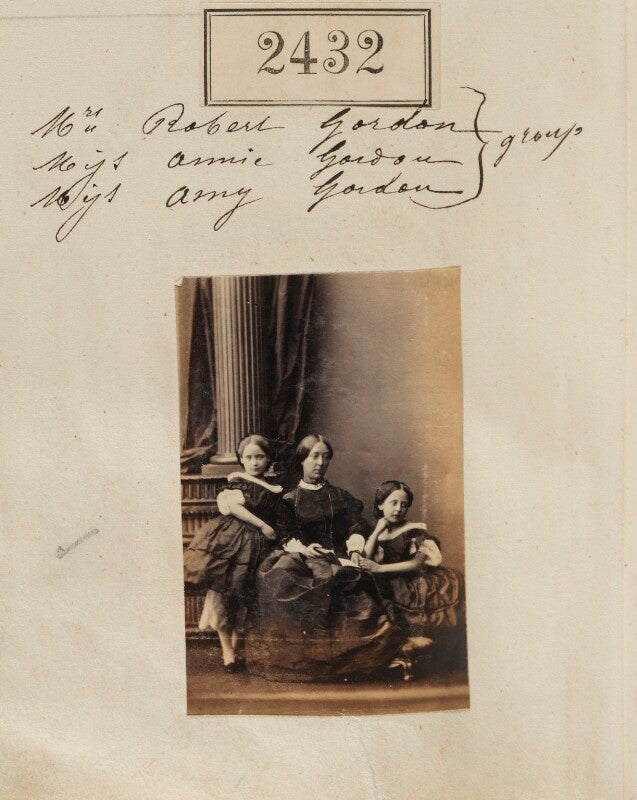 2432
Mrs Robert Gordon
Miss Annie Gordon
Miss Amy Gordon
group